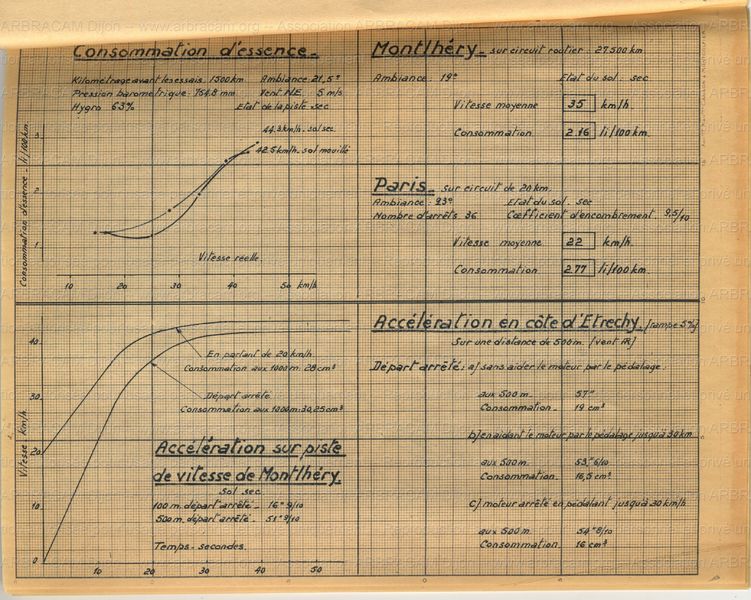 Consommation d'essence_
Kilométrage avant les essais : 1500 km Ambiance : 21,5°
Pression barométrique : 754,8 mm Vent N.E. : 5 m/s
Hygro 63% Etat de la piste : sec
Consommation d'essence - li/100 km
3
2
1
44.3 km/h. sol sec.
42.5 km/h. sol mouillé
Vitesse réelle
10 20 30 40 50 km/h
Montlhéry_ sur circuit routier : 27.500 km
Ambiance : 19° Etat du sol : sec
Vitesse moyenne 35 km/h.
Consommation 2.16 li/100 km.
Paris_ sur circuit de 20 km.
Ambiance : 23° Etat du sol : sec
Nombre d'arrêts 36 Coefficient d'encombrement 9,5/10
Vitesse moyenne 22 km/h.
Consommation 2.77 li/100 km.
Vitesse km/h.
40
30
20
10
0
En partant de 20 km/h
Consommation aux 1000 m. 28 cm³
Départ arrêté
Consommation aux 1000 m: 30,25 cm³
Accélération sur piste
de vitesse de Montlhéry.
Sol sec
100 m. départ arrêté - 16" 9/10
500 m. départ arrêté - 51" 9/10
Temps - secondes.
10 20 30 40 50
Accélération en côte d'Etrechy. (rampe 5%)
Sur une distance de 500 m.
Départ arrêté : a) sans aider le moteur par le pédalage :
aux 500 m. 57"
Consommation - 19 cm³
b) en aidant le moteur par le pédalage jusqu'à 30 km
aux 500 m. 53" 6/10
Consommation. 16,5 cm³
c) moteur arrêté en pédalant jusqu'à 30 km/h
aux 500 m 54" 8/10
Consommation 16 cm³